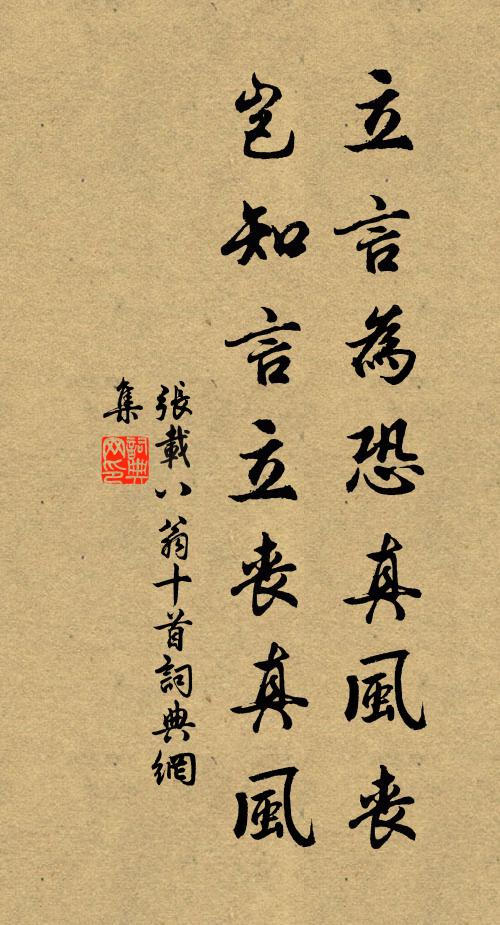 立言為恐真風喪
豈知言立喪真風
張載八翁十首詞典網
集
詞典網印